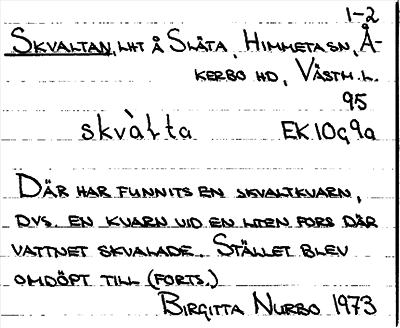 1-2
SKVALTAN, LHT Å SLÄTA, HIMMETA SN, Å-
KERBO HD, VÄSTM. L.
95
skvàlta EK 10G 9a
DÄR HAR FUNNITS EN SKVALTKVARN,
DVS. EN KVARN VID EN LITEN FORS DÄR
VATTNET SKVALADE. STÄLLET BLEV
OMDÖPT TILL (FORTS.)
BIRGITTA NURBO 1973